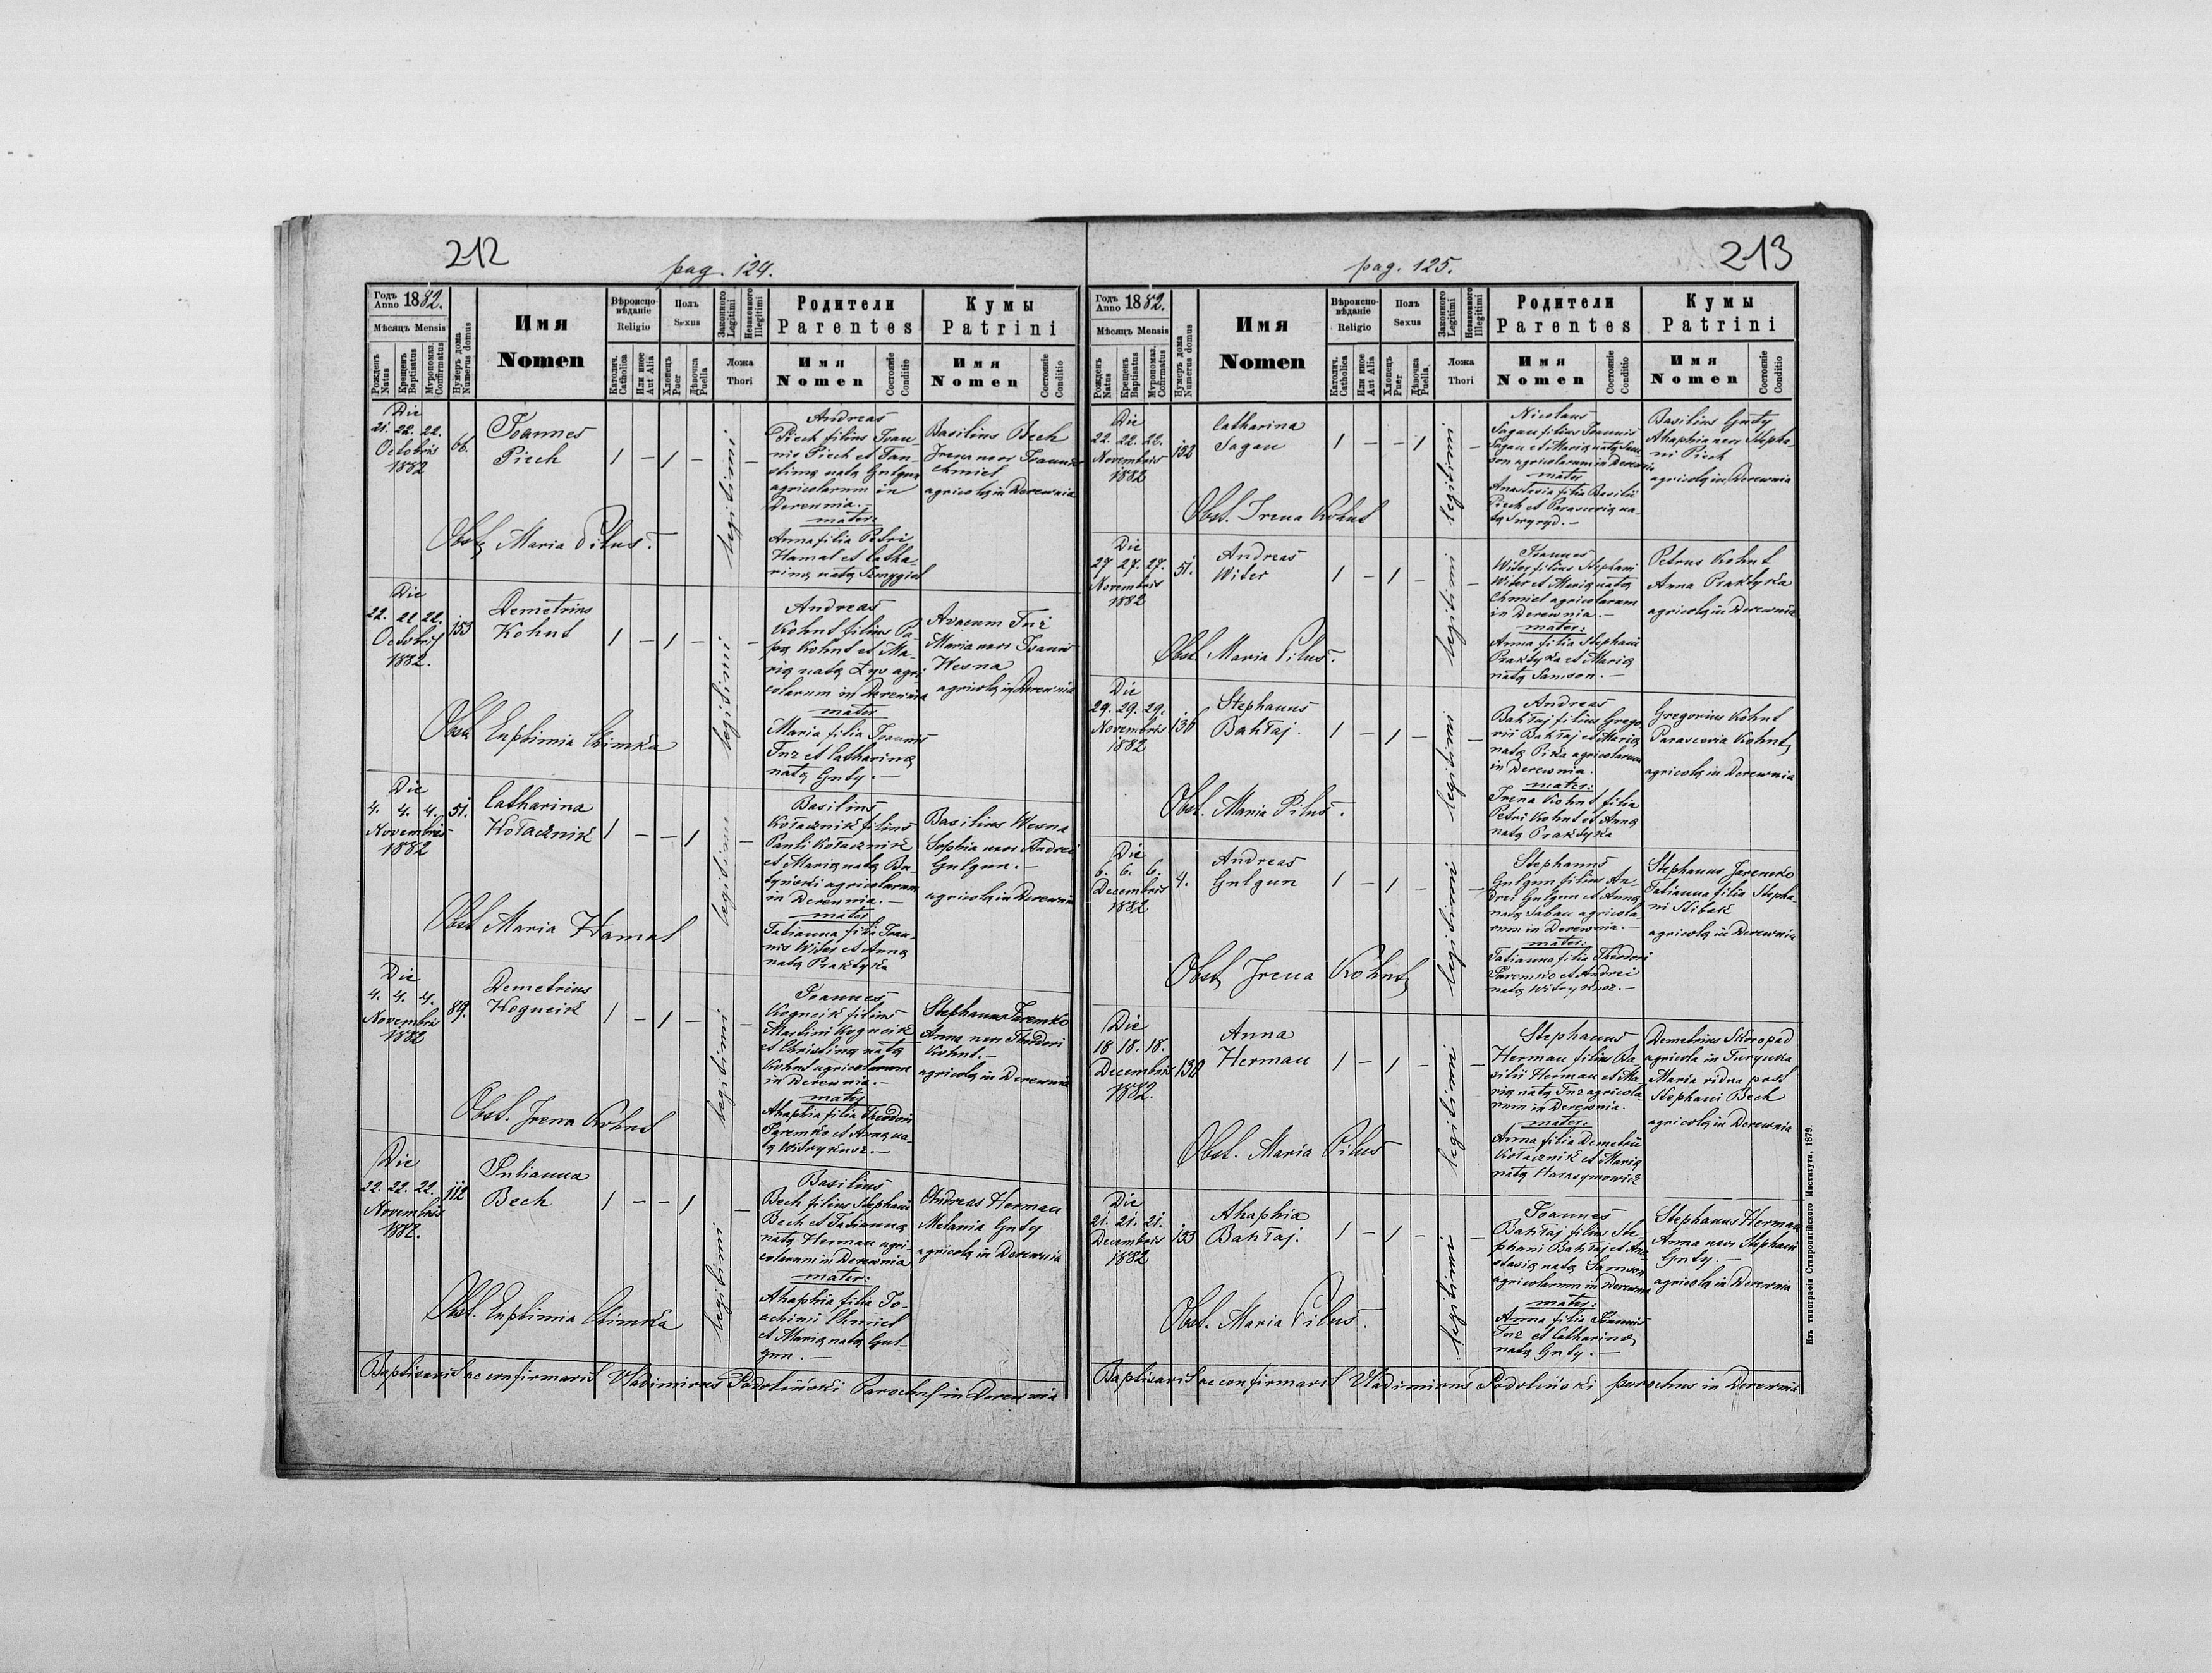 212
pag. 124.
Годъ Anno 1882.
Мѣсяцъ Mensis
Рожденъ Natus
Крещенъ Baptisatus
Мѵропомаз. Confirmatus
Нумеръ дома Numerus domus
Имя
Nomen
Вѣроисповѣданіе Religio
Католич. Catholica
Или иное Aut Alia
Полъ Sexus
Хлопецъ Puer
Дѣвочка Puella
Законного Legitimi
Незаконного Illegitimi
Ложа Thori
Родители
Parentes
Имя Nomen
Состояніе Conditio
Кумы
Patrini
Имя Nomen
Состояніе Conditio
Die
21. 22. 22.
Octobris
1882
66.
Joannes
Piech
1 - 1 -
legitimi
-
Andreas
Piech filius Joan-
nis Piech et
natą Gulgun
agricolarum in
Derewnia.
mater:
Anna filia Petri
Hamal et Catha-
riną natą Szmygiel
Basilius Bech
Irena uxor Joannis
Chmiel
agricolą in Derewnia
Obst. Maria Pilus.
Die
22. 22 22.
Octobris
1882.
153
Demetrius
Kohut
1 - 1 -
legitimi
-
Andreas
Kohut filius
Kohut et Ma-
rią natą Łys agri-
colarum in Derewnia
mater
Maria filia Joannis
Fuz et Catharina
natą Guty.-
Avacum Fuz
Maria uxor Joannis
Wesna
agricolą in Derewnia
Obst. Euphimia Chimka
Die
4. 4. 4.
Novembris
1882
51.
Catharina
Kołacznik
1 - - 1
legitimi
-
Basilius
Kołacznik filius
Pauli Kołacznik
et Marią natą Bu-
tyński agricolarum
in Derewnia.-
mater
Tatianna filia Joan-
nis Witer et Anną
natą Praktyka
Basilius Wesna
Sophia uxor Andrei
Gulgun.-
agricolą in Derewnia
Obst Maria Hamal
Die
4. 4. 4.
Novembris
1882
89.
Demetrius
Kogucik
1 - 1 -
legitimi
-
Joannes
Kogucik filius
Martini Kogucik
et Christiną natą
Kohut agricolarum
in Derewnia.-
mater
Ahaphia filia Theodori
Jaremko et Anną na-
tą Witrykusz.-
Stephanus Jaremko
Anna uxor Theodori
Kohut.-
agricolą in Derewnia
Obst. Irena Kohut
Die
22. 22. 22.
Novembris
1882.
112
Julianna
Bech
1 - - 1
legitimi
-
Basilius
Bech filius Stephani
Bech et Tatianną
natą Herman agri-
colarum in Derewnia
mater:
Ahaphia filia Jo-
achimi Chmiel
et Marią natą Gul-
gun.
Andreas Herman
Melania Guty
agricolą in Derewnia
Obst. Euphimia Chimka
Baptisavit ac confirmavit Vladimirus Podoliński Parochus in Derewnia
213
pag. 125.
Годъ Anno 1882.
Мѣсяцъ Mensis
Рожденъ Natus
Крещенъ Baptisatus
Мѵропомаз. Confirmatus
Нумеръ дома Numerus domus
Имя
Nomen
Вѣроисповѣданіе Religio
Католич. Catholica
Или иное Aut Alia
Полъ Sexus
Хлопецъ Puer
Дѣвочка Puella
Законного Legitimi
Незаконного Illegitimi
Ложа Thori
Родители
Parentes
Имя Nomen
Состояніе Conditio
Кумы
Patrini
Имя Nomen
Состояніе Conditio
Die
22. 22. 22.
Novembris
1882
132
Catharina
Sagan
1 - - 1
legitimi
-
Nicolaus
Sagan filius Joannis
Sagan et Marią natą Sam-
son agricolarum in Derewnia
mater
Anastasia filia Basilii
Piech et Parascevią na-
tą Swyryd.-
Basilius Guty
Ahaphia uxor Stepha-
ni Piech
agricolą in Derewnia
Obst. Irena Kohut
Die
27 27. 27.
Novembris
1882
51.
Andreas
Witer
1 - 1 -
legitimi
-
Joannes
Witer filius Stephani
Witer et Marią natą
Chmiel agricolarum
in Derewnia.-
mater:
Anna filia Stephani
Praktyka et Marią
natą Samson.-
Petrus Kohut
Anna Praktyka
agricolą in Derewnia
Obst. Maria Pilus.
Die
29. 29. 29.
Novembris
1882
136
Stephanus
Bahłaj.
1 - 1 -
legitimi
-
Andreas
Bahłaj filius Grego
rii Bahłaj et Marią
natą Pika agricolarum
in Derewnia.
mater:
Irena Kohut filia
Petri Kohut et Anną
natą Praktyka
Gregorius Kohut
Parascevia Kohut
agricolą in Derewnia
Obst. Maria Pilus.
Die
6. 6. 6.
Decembris
1882
4.
Andreas
Gulgun
1 - 1 -
legitimi
-
Stephanus
Gulgun filius An-
drei Gulgun et Anną
natą Saban agricola-
rum in Derewnia.-
mater:
Tatianna filia Theodori
Jaremko et Andrei
natą Witrykusz.-
Stephanus Jaremko
Tatianna filia Stepha-
ni Stibak
agricolą in Derewnia
Obst Irena Kohut
Die
18 18. 18.
Decembris
1882.
130
Anna
Herman
1 - 1 -
legitimi
-
Stephanus
Herman filius Ba-
silii Herman et Ma-
rią natą Fuz agricola-
rum in Derewnia.
mater:
Anna filia Demetrii
Kołacznik et Marią
natą Harasymowicz
Demetrius Skoropad
agricola in Turynka
Maria vidua post
Stephani Bech
agricolą in Derewnia
Obst. Maria Pilus
Die
21. 21. 21.
Decembris
1882
153
Ahaphia
Bahłaj.
1 - 1 -
legitimi
-
Joannes
Bahłaj filius Ste-
phani Bahłaj et Ana-
stasią natą Samson
agricolarum in Derewnia
mater:
Anna filia Joannis
Fuz et Catharina
natą Guty.-
Stephanus Herman
Anna uxor Stephani
Guty.-
agricolą in Derewnia
Obst. Maria Pilus.
Baptisavit ac confirmavit Vladimirus Podoliński parochus in Derewnia
Изъ типографіи Ставропигійского Института, 1879.